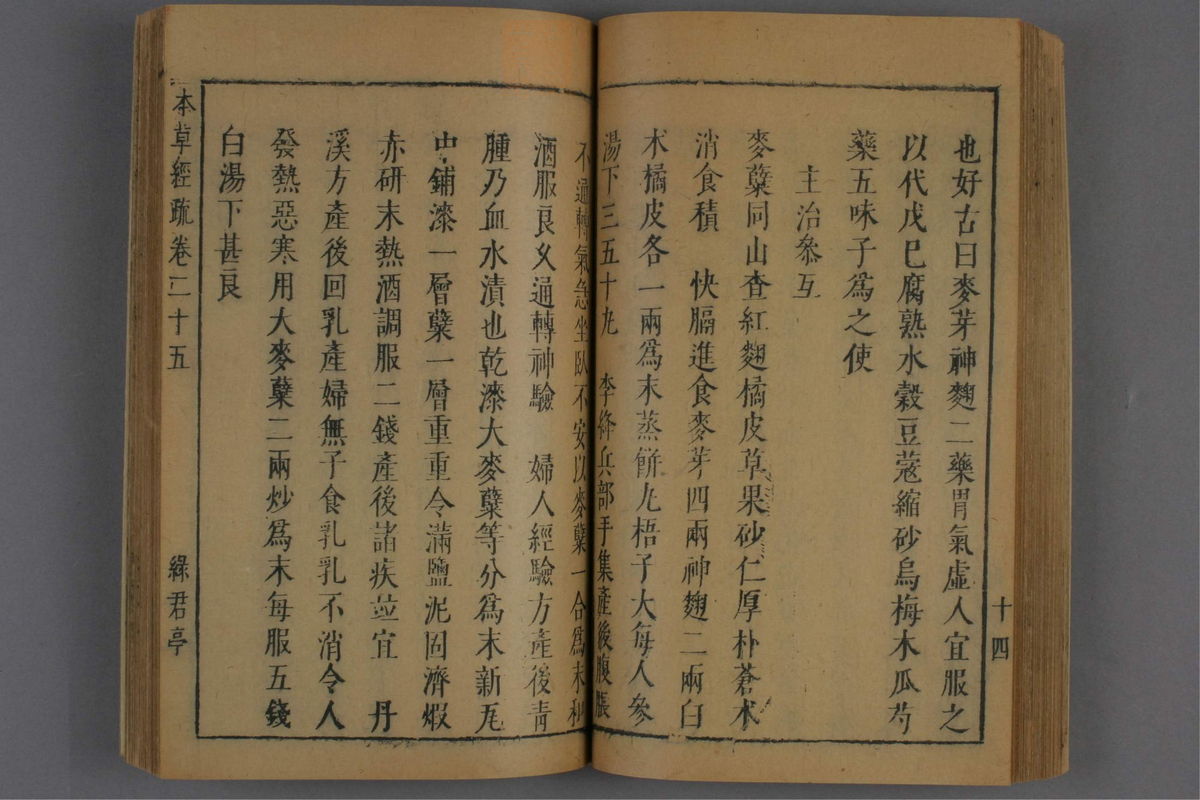 十四
也好古曰麥芽神麯二藥胃氣虛人宜服之
以代戊巳腐熟水穀豆蔻縮砂烏梅木瓜芍
藥五味子爲之使
主治叅互
麥蘖同山查紅麯橘皮草果砂仁厚朴蒼术
消食積　快膈進食麥芽四兩神麯二兩白
术橘皮各一兩爲末蒸餅丸梧子大每人參
湯下三五十丸　李絳兵部手集產後腹脹
不通轉氣急坐臥不安以麥蘖一合爲末和
酒服良乆通轉神驗　婦人經驗方產後青
腫乃血水漬也乾漆大麥蘖等分爲末新瓦
中鋪漆一層蘖一層重重令滿鹽泥固濟煆
赤研末熱酒調服二錢產後諸疾竝宜　丹
溪方產後回乳產婦無子食乳乳不消令人
發熱惡寒用大麥蘖二兩炒爲末每服五錢
白湯下甚良
本草經疏卷二十五
綠君亭